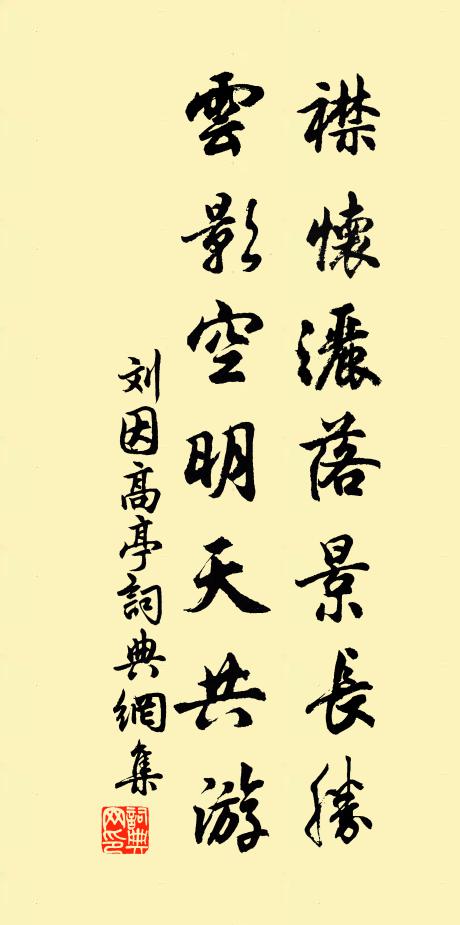 襟懷灑落景長勝
雲影空明天共游
刘因高亭詞典網集
詞典网印